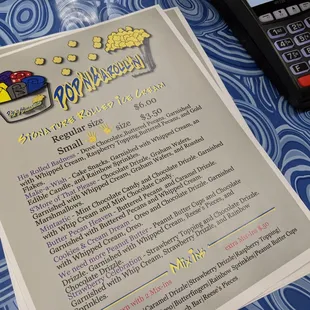 Signature Rolled Ice Cream
Regular size $6.00
Small size $3.50
His Rolled Radness - Dove Chocolate, Buttered Pecans, Garnished
with Whipped Cream, Raspberry Topping, Buttered Pecans, and Gold
Flakes.
Make a Wish - Cake Snacks, Garnished with Whipped Cream, an
Edible Candle, and Rainbow Sprinkles.
S'more of That Please - Chocolate Drizzle, Graham Wafers,
Garnished with Whipped Cream, Graham Wafers, and Roasted
Marshmallow.
Mint Chocolate Candy and Chocolate Drizzle, Garnished
with Whip Cream and Mint Chocolate Candy.
Butter Pecan Heaven - Buttered Pecans, and Caramel Drizzle,
Garnished with Buttered Pecans and Caramel Drizzle.
Cookies & Cream Dream - Oreo and Chocolate Drizzle, Garnished
with Whipped Cream, Oreo
We need more Peanut Butter - Peanut Butter Cups and Chocolate
Drizzle, Garnished with Whipped Cream, Reese Pieces, and
Chocolate Drizzle.
Strawberry Celebration - Strawberry Topping and Chocolate Drizzle,
Garnished with Whip Cream, Strawberry Drizzle, and Rainbow
Sprinkles.
Mix Ins
with 2 Mix-ins extra Mix-ins $.50
Caramel Drizzle|Strawberry Drizzle|Strawberry Topping|
Butterfingers|Rainbow Sprinkles|Peanut Butter Cups
Bar|Reese's Pieces